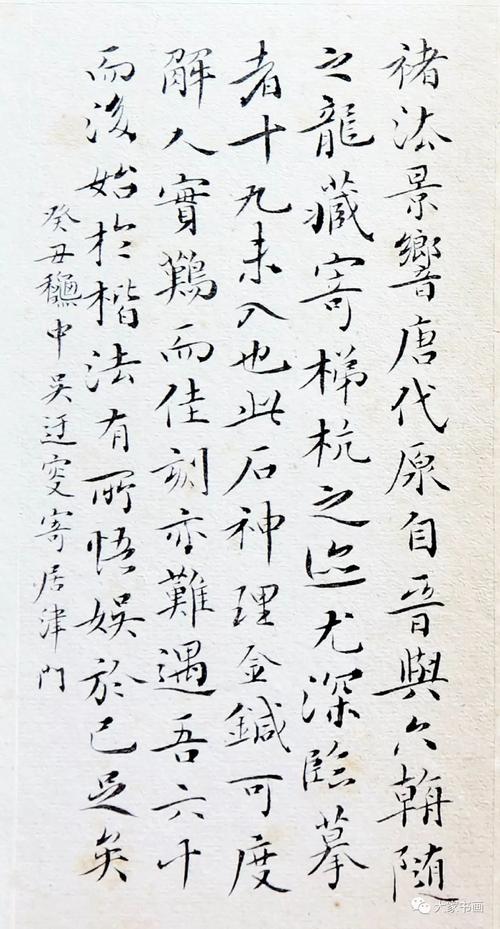 褚法景響唐代原自晉與六朝隨
之龍藏寄梯杭之迹尤深臨摹
者十九未入也此石神理金鍼可度
解人實難而佳刻亦難遇吾六十
而後始於楷法有所悟娛於己足矣
癸丑龝中吳迂叟寄居津門
大家书画